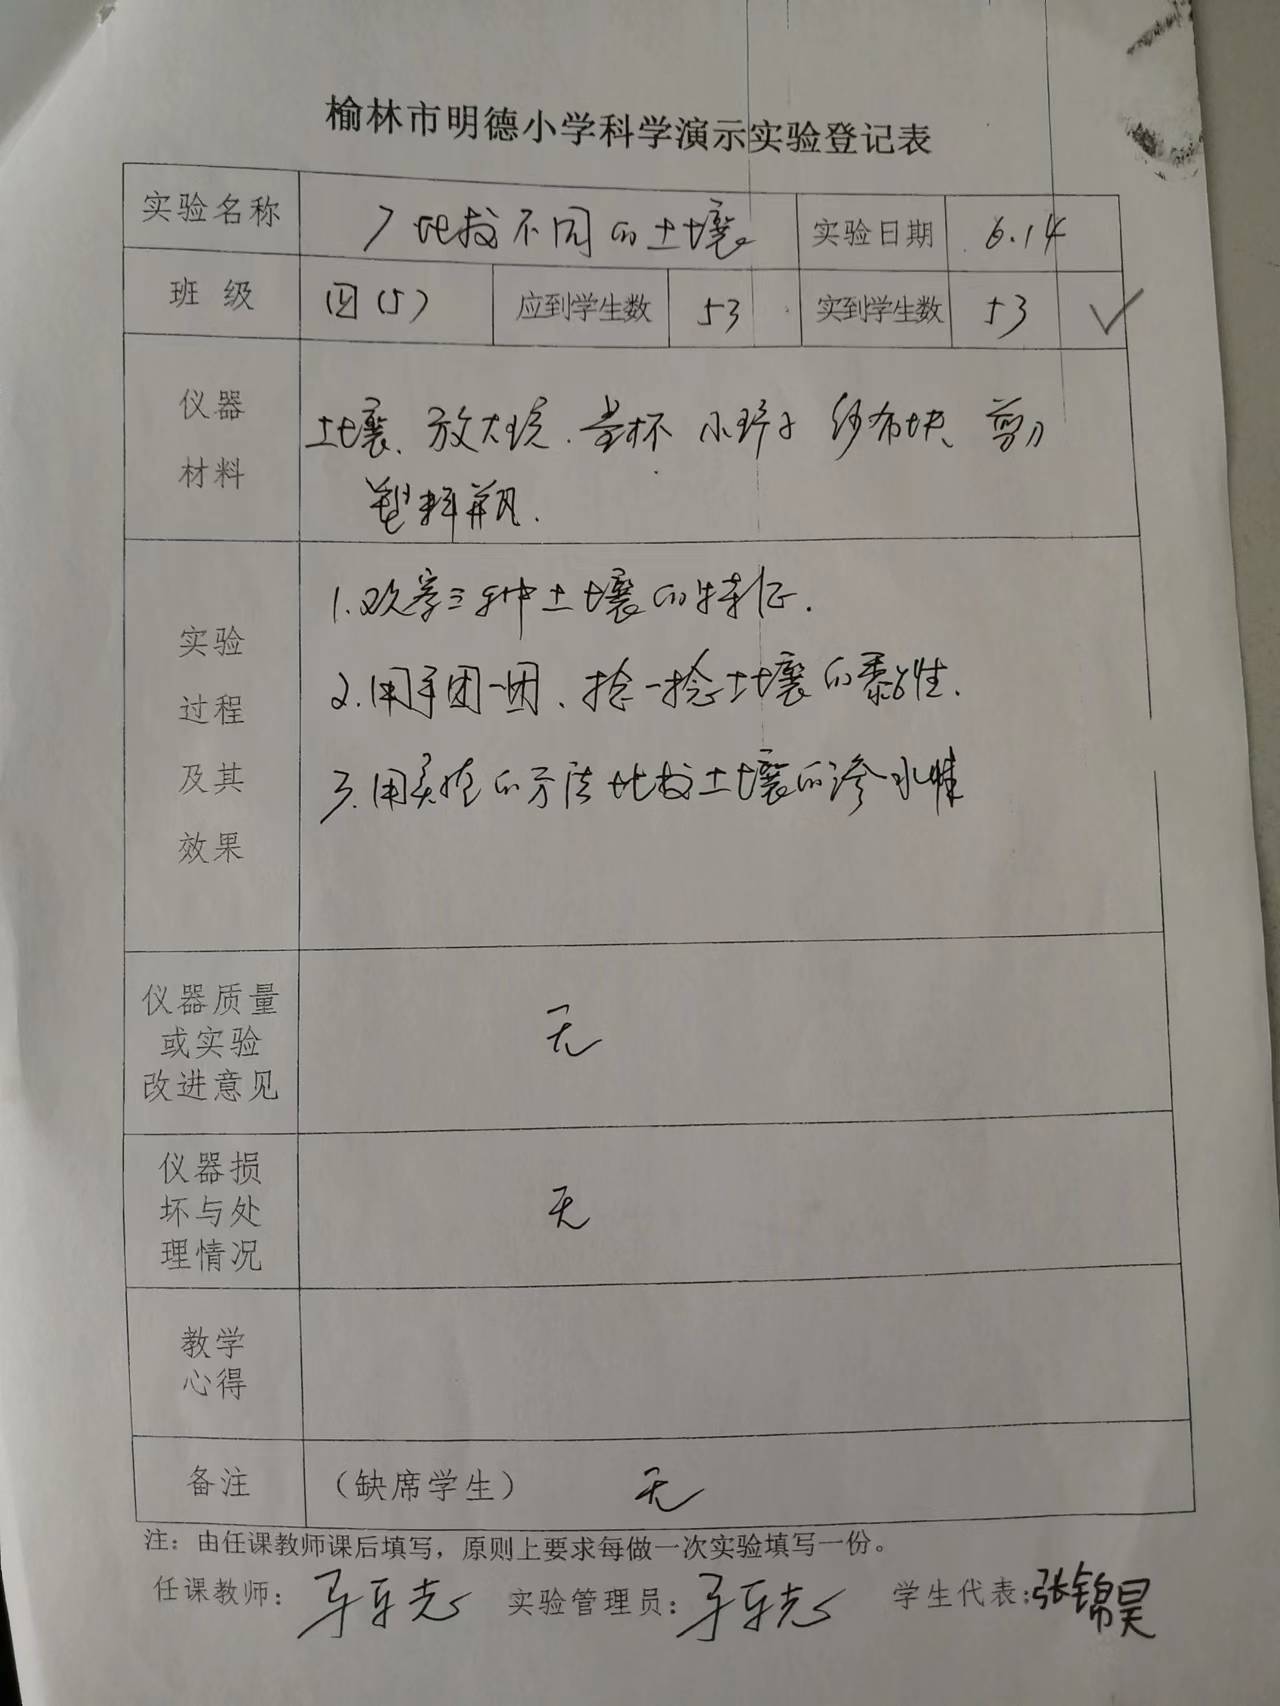 榆林市明德小学科学演示实验登记表
实验名称 7 比较不同的土壤 实验日期 6.14
班级 四(5) 应到学生数 53 实到学生数 53 ✓
仪器
材料
土壤、放大镜、烧杯 小铲子 纱布块、剪刀
塑料瓶.
实验
过程
及其
效果
1.观察三种土壤的特征.
2.用手团一团、捻一捻土壤的黏性.
3.用实验的方法比较土壤的渗水性
仪器质量
或实验
改进意见
无
仪器损
坏与处
理情况
无
教学
心得
备注 (缺席学生) 无
注：由任课教师课后填写，原则上要求每做一次实验填写一份。
任课教师： 实验管理员： 学生代表：张锦昊